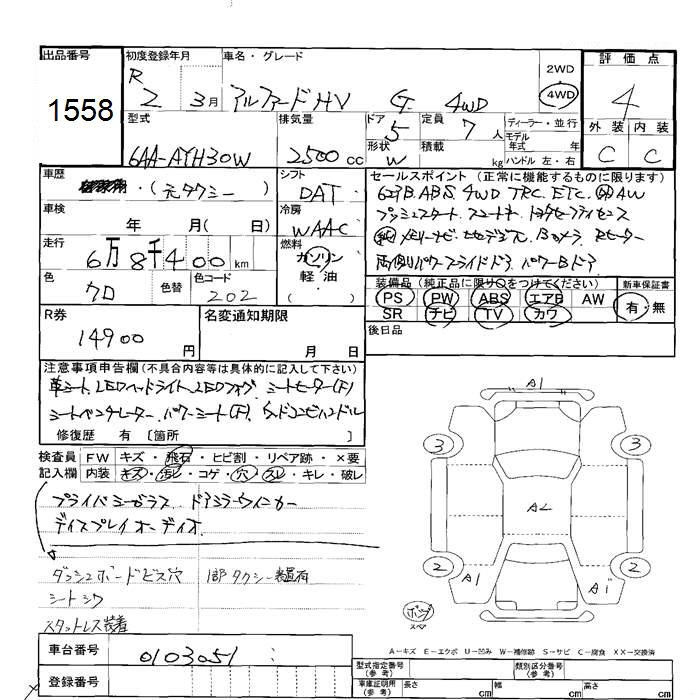 出品番号 1558
初度登録年月 R 2 3月
車名・グレード アルファードHV G 4WD
2WD
4WD
評価点 4
外装 内装
C C
型式 6AA-AYH30W
排気量 2500 cc
ドア 5
形状 W
定員 7 人
積載 kg
ディーラー・並行
モデル年式 年
ハンドル 左・右
車歴 (元タクシー)
シフト DAT
セールスポイント (正常に機能するものに限ります)
ABS 4WD TRC. ETC. AW
プッシュスタート スマートキー
メモリーナビ 地デジ Bカメラ Rヒーター
両側パワースライドドア パワーBドア
車検 年 月( 日)
冷房 WAAC
走行 6万8千400 km
燃料 ガソリン
軽・油
( )
色 クロ
色替
色コード 202
装備品 (純正品に限り○をつけてください)
PS PW ABS エアB AW
SR ナビ TV カワ
新車保証書 有・無
R券 14900 円
名変通知期限 月 日
後日品
注意事項申告欄 (不具合内容等は具体的に記入して下さい)
革シート. LEDヘッドライト. LEDフォグ. シートヒーター(F)
シートベンチレーター. パワーシート(F). ウッドコンビハンドル
修復歴 有 〔箇所 〕
検査員 FW キズ・飛石・ヒビ割・リペア跡・×要
記入欄 内装 キズ・汚レ・コゲ・穴・スレ・キレ・破レ
プライバシーガラス ドアミラーウィンカー
ディスプレイオーディオ
ダッシュボードビス穴 1部タクシー装置有
シートシワ
スタットレス装着
A1
3 3
A2
2 2
A1 A1
スペ
A－キズ E－エクボ U－凹み W－補修跡 S－サビ C－腐食 XX－交換済
車台番号 0103051
登録番号
型式指定番号(参考)
類別区分番号(参考)
車庫証明用(参考) 長さ cm 幅 cm 高さ cm